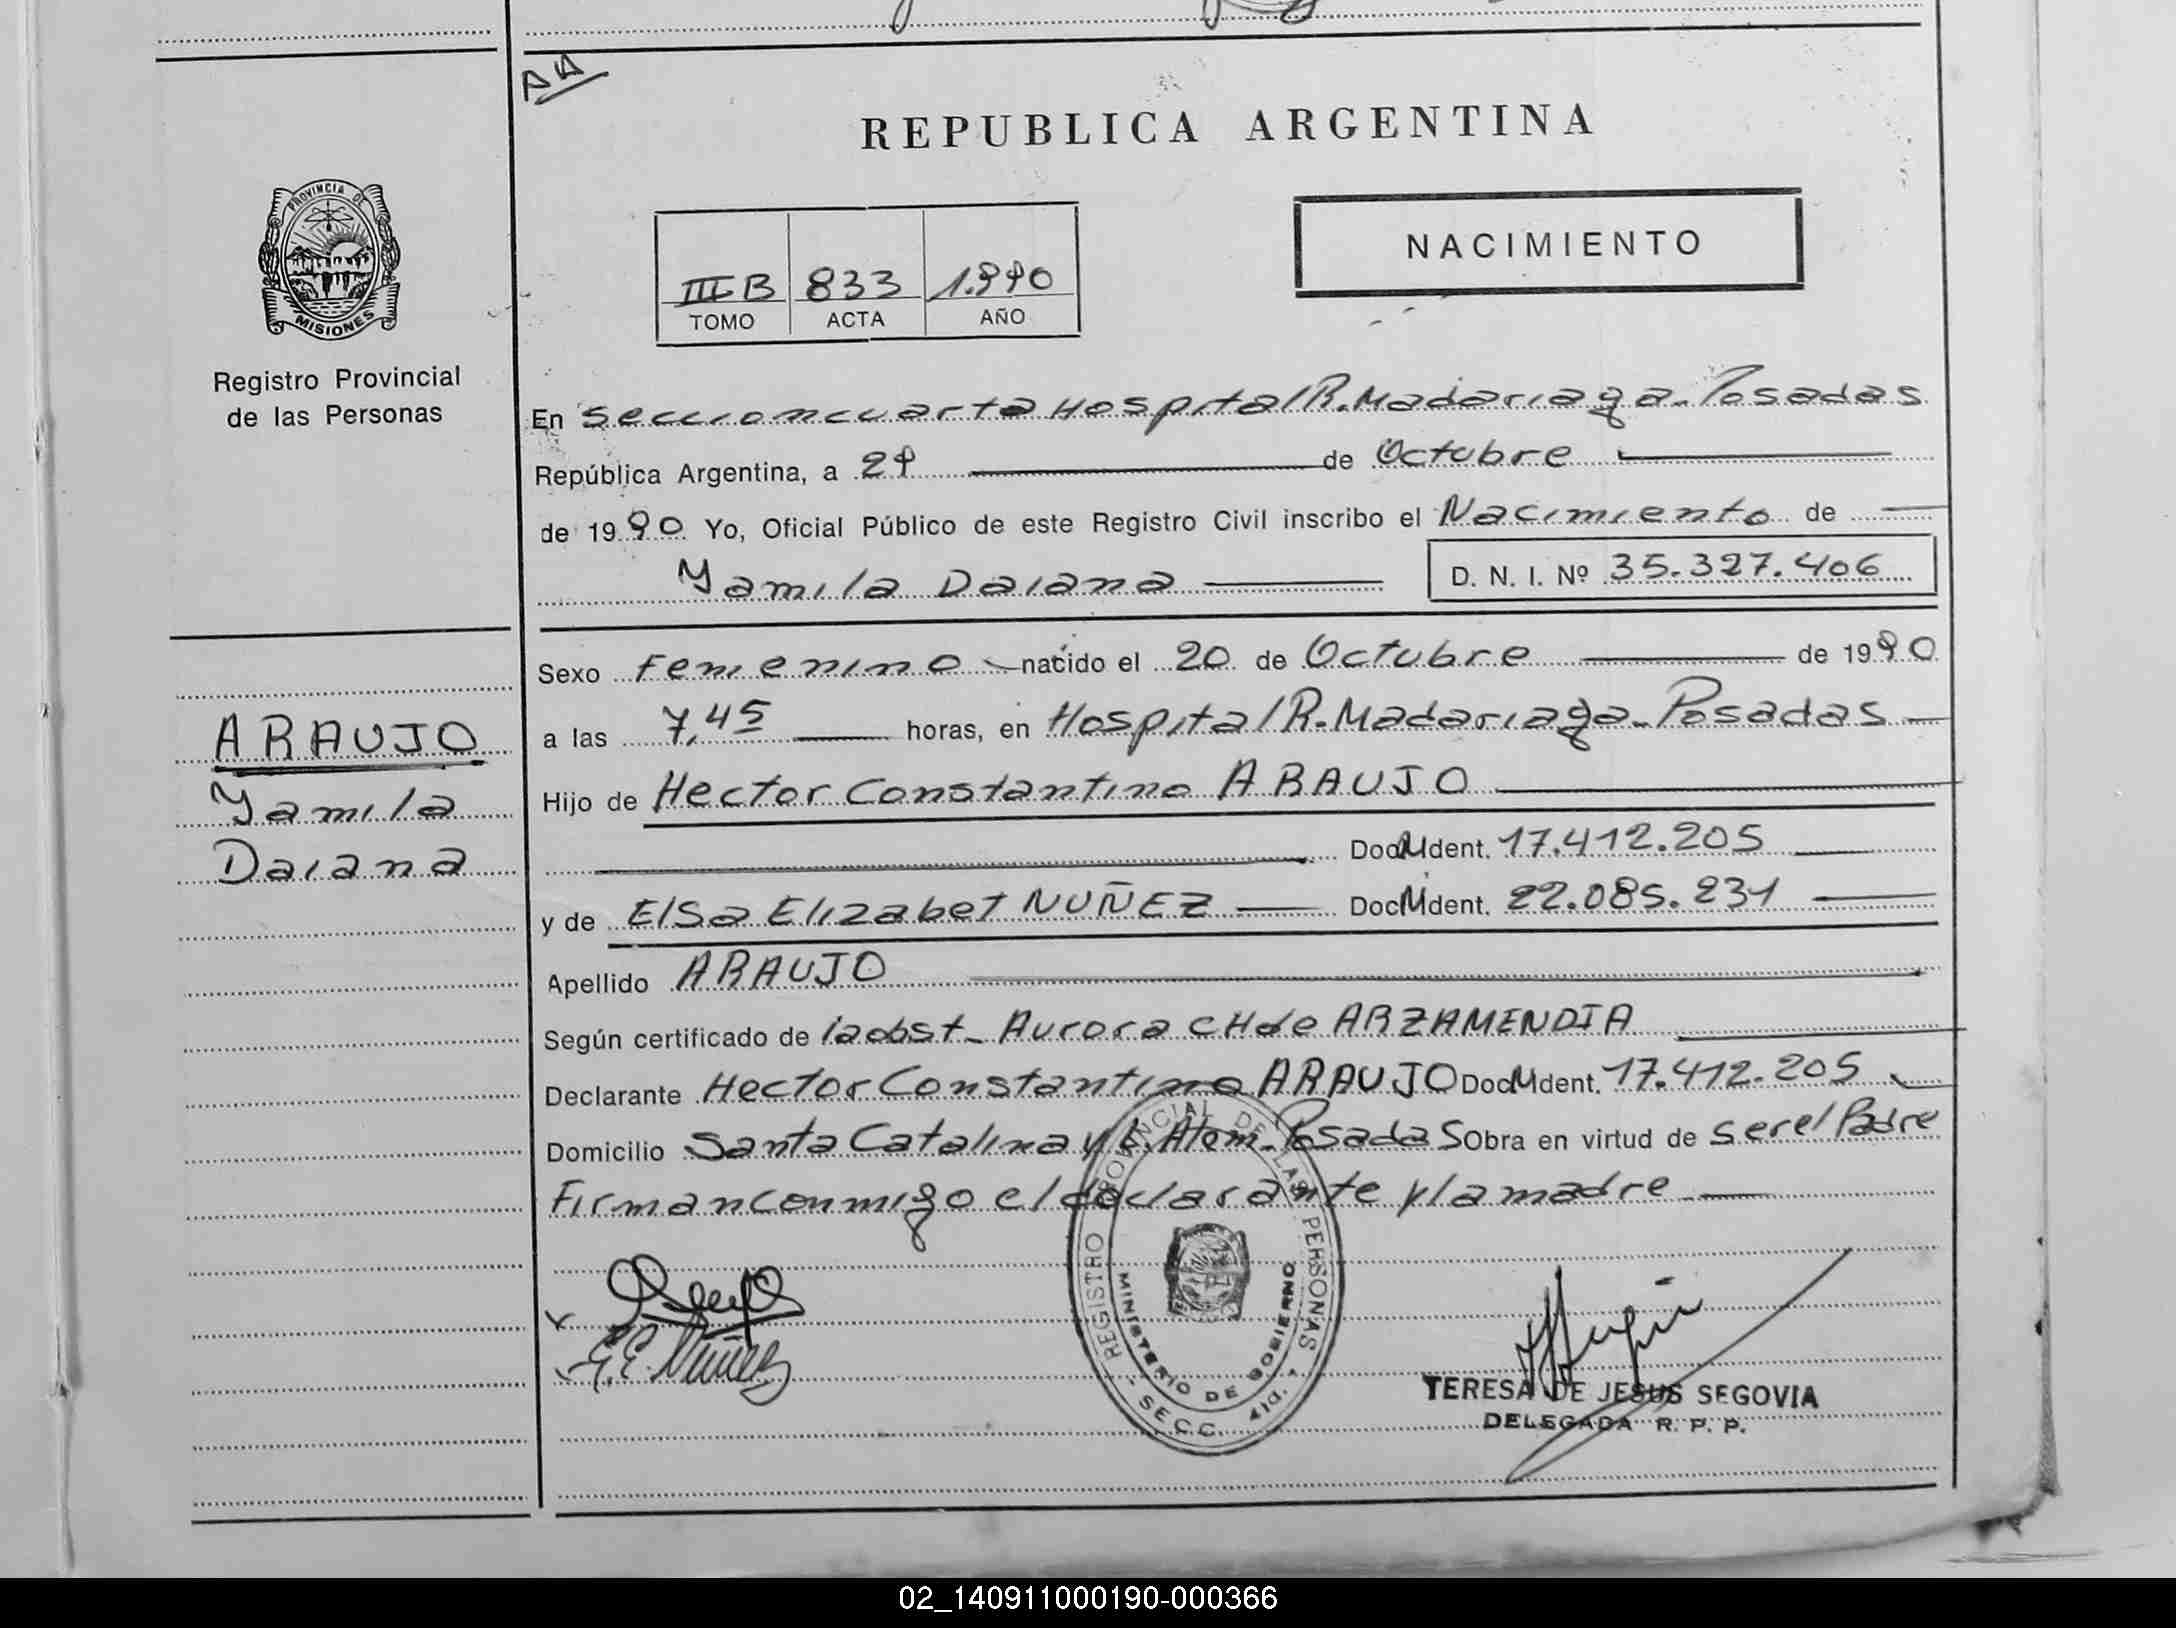 AA
REPUBLICA ARGENTINA
PROVINCIA DE
MISIONES
Registro Provincial
de las Personas
III B 833 1.990
TOMO ACTA AÑO
NACIMIENTO
En Seccion cuarta Hospital R. Madariaga - Posadas
República Argentina, a 29 de Octubre
de 1990 Yo, Oficial Público de este Registro Civil inscribo el Nacimiento de
Yamila Daiana D. N. I. Nº 35.327.406
Sexo Femenino nacido el 20 de Octubre de 1990
a las 7,45 horas, en Hospital R. Madariaga - Posadas
Hijo de Hector Constantino ARAUJO
Doc. M Ident. 17.412.205
y de Elsa Elizabet NUÑEZ Doc. M Ident. 22.085.231
Apellido ARAUJO
Según certificado de la obst - Aurora CH de ARZAMENDIA
Declarante Hector Constantino ARAUJO Doc. M Ident. 17.412.205
Domicilio Santa Catalina y L. Alem - Posadas Obra en virtud de ser el Padre
Firman conmigo el declarante y la madre
ARAUJO
Yamila
Daiana
E.E. Nuñez
REGISTRO PROVINCIAL DE LAS PERSONAS
MINISTERIO DE GOBIERNO
SECC. 4ta.
TERESA DE JESUS SEGOVIA
DELEGADA R. P. P.
02_140911000190-000366